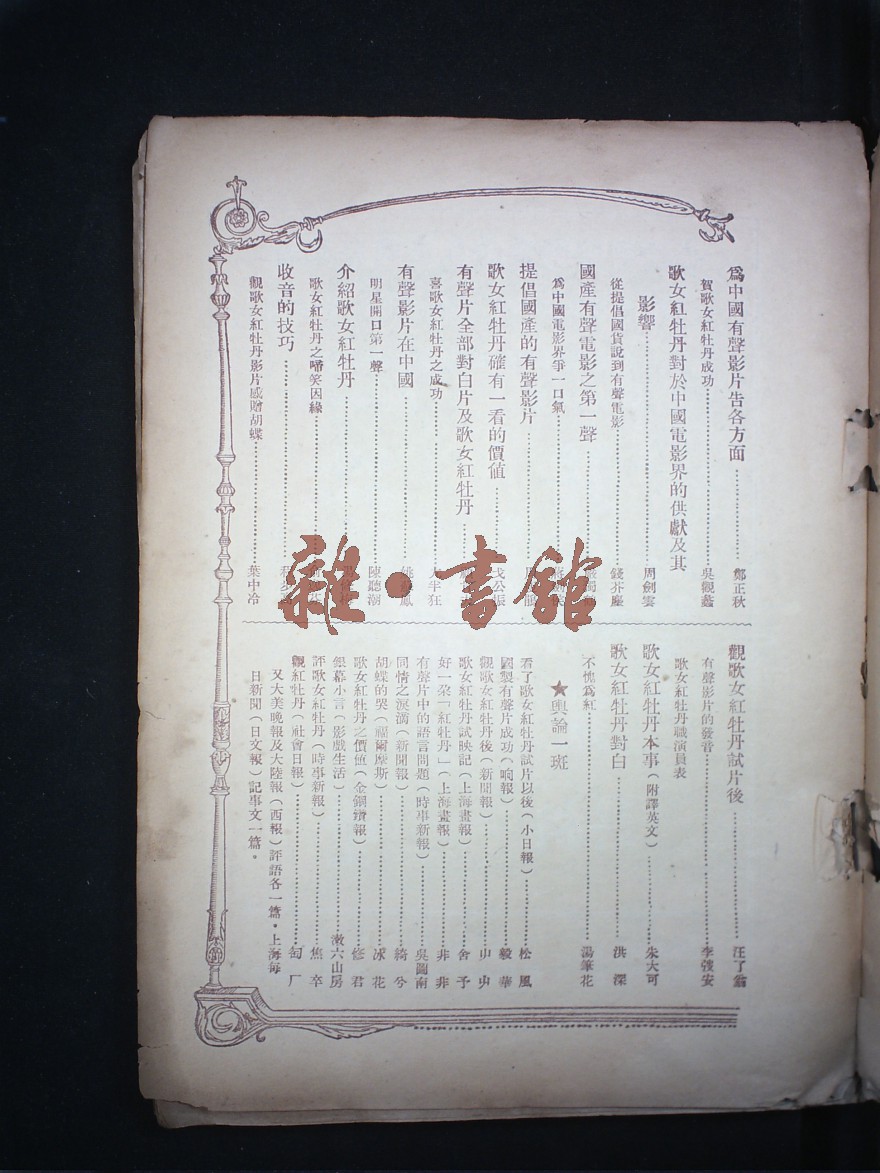 為中國有聲影片告各方面 鄭正秋
賀歌女紅牡丹成功 吳觀蠡
歌女紅牡丹對於中國電影界的供獻及其
影響 周劍雲
從提倡國貨說到有聲電影 錢芥塵
國產有聲電影之第一聲
為中國電影界爭一口氣
提倡國產的有聲影片
歌女紅牡丹確有一看的價值 戈公振
有聲片全部對白片及歌女紅牡丹
喜歌女紅牡丹之成功 半狂
明星開口第一聲 陳聽潮
有聲影片在中國 鳳
歌女紅牡丹之啼笑因緣
介紹歌女紅牡丹
收音的技巧
觀歌女紅牡丹影片感贈胡蝶 葉中冷
觀歌女紅牡丹試片後 汪了翁
有聲影片的發音 李弢安
歌女紅牡丹職演員表
歌女紅牡丹本事(附譯英文) 朱大可
歌女紅牡丹對白 洪深
不愧為紅 湯筆花
★輿論一斑
看了歌女紅牡丹試片以後(小日報) 松風
國製有聲片成功(响報) 毅華
觀歌女紅牡丹後(新聞報)
歌女紅牡丹試映記(上海畫報) 舍予
好一朵「紅牡丹」(上海畫報) 非非
有聲片中的語言問題(時事新報) 吳圖南
同情之淚滴(新聞報) 綺兮
胡蝶的哭(福爾摩斯) 冰花
歌女紅牡丹之價值(金鋼鑽報) 修君
銀幕小言(影戲生活) 漱六山房
評歌女紅牡丹(時事新報) 焦卒
觀紅牡丹(社會日報) 匄厂
又大美晚報及大陸報(西報)評語各一篇。上海每
日新聞(日文報)記事文一篇。
雜·書館